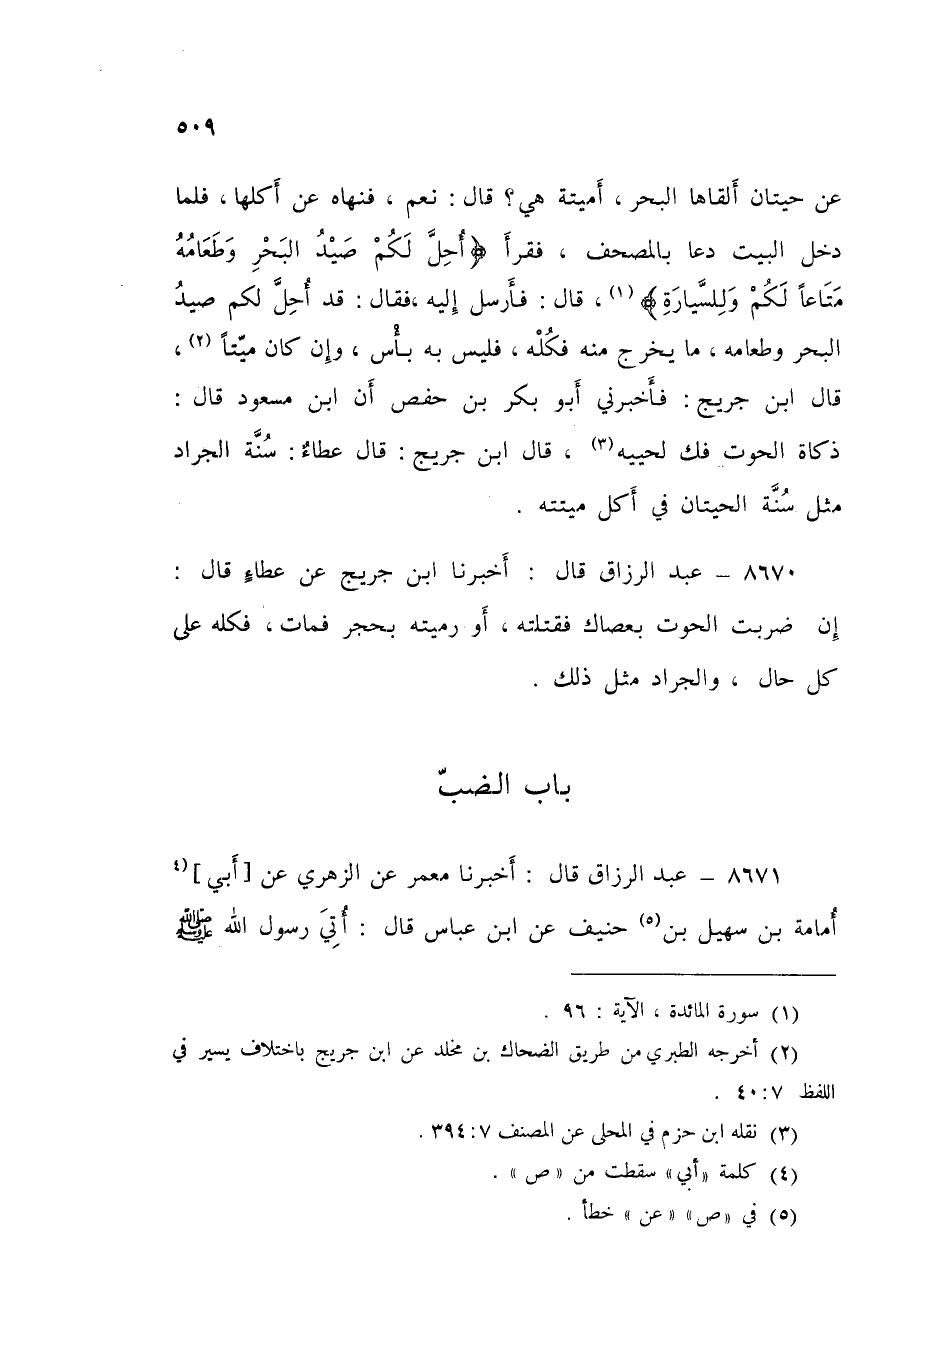 ٥٠٩
عن حيتان أَلقاها البحر ، أَميتة هي؟ قال : نعم ، فنهاه عن أَكلها ، فلما
دخل البيت دعا بالمصحف ، فقرأَ ﴿أُحِلَّ لَكُمْ صَيْدُ البَحْرِ وَطَعَامُهُ
مَتَاعاً لَكُمْ وَلِلسَّيارَةِ﴾ (١) ، قال : فأَرسل إليه ،فقال : قد أُحِلَّ لكم صيدُ
البحر وطعامه ، ما يخرج منه فكُلْه ، فليس به بأْس ، وإن كان ميّتاً (٢) ،
قال ابن جريج : فأَخبرني أَبو بكر بن حفص أَن ابن مسعود قال :
ذكاة الحوت فك لحييه(٣) ، قال ابن جريج : قال عطاءٌ : سُنَّة الجراد
مثل سُنَّة الحيتان في أَكل ميتته .
٨٦٧٠ – عبد الرزاق قال : أَخبرنا ابن جريج عن عطاءٍ قال :
إن ضربت الحوت بعصاك فقتلته ، أَو رميته بحجر فمات ، فكله على
كل حال ، والجراد مثل ذلك .
باب الضبّ
٨٦٧١ – عبد الرزاق قال : أَخبرنا معمر عن الزهري عن [أَبي](٤
أُمامة بن سهيل بن(٥) حنيف عن ابن عباس قال : أُتِيَ رسول الله ﷺ
(١) سورة المائدة ، الآية : ٩٦ .
(٢) أخرجه الطبري من طريق الضحاك بن مخلد عن ابن جريج باختلاف يسير في
اللفظ ٧ : ٤٠ .
(٣) نقله ابن حزم في المحلى عن المصنف ٧ : ٣٩٤ .
(٤) كلمة «أبي» سقطت من « ص » .
(٥) في «ص» « عن » خطأ .